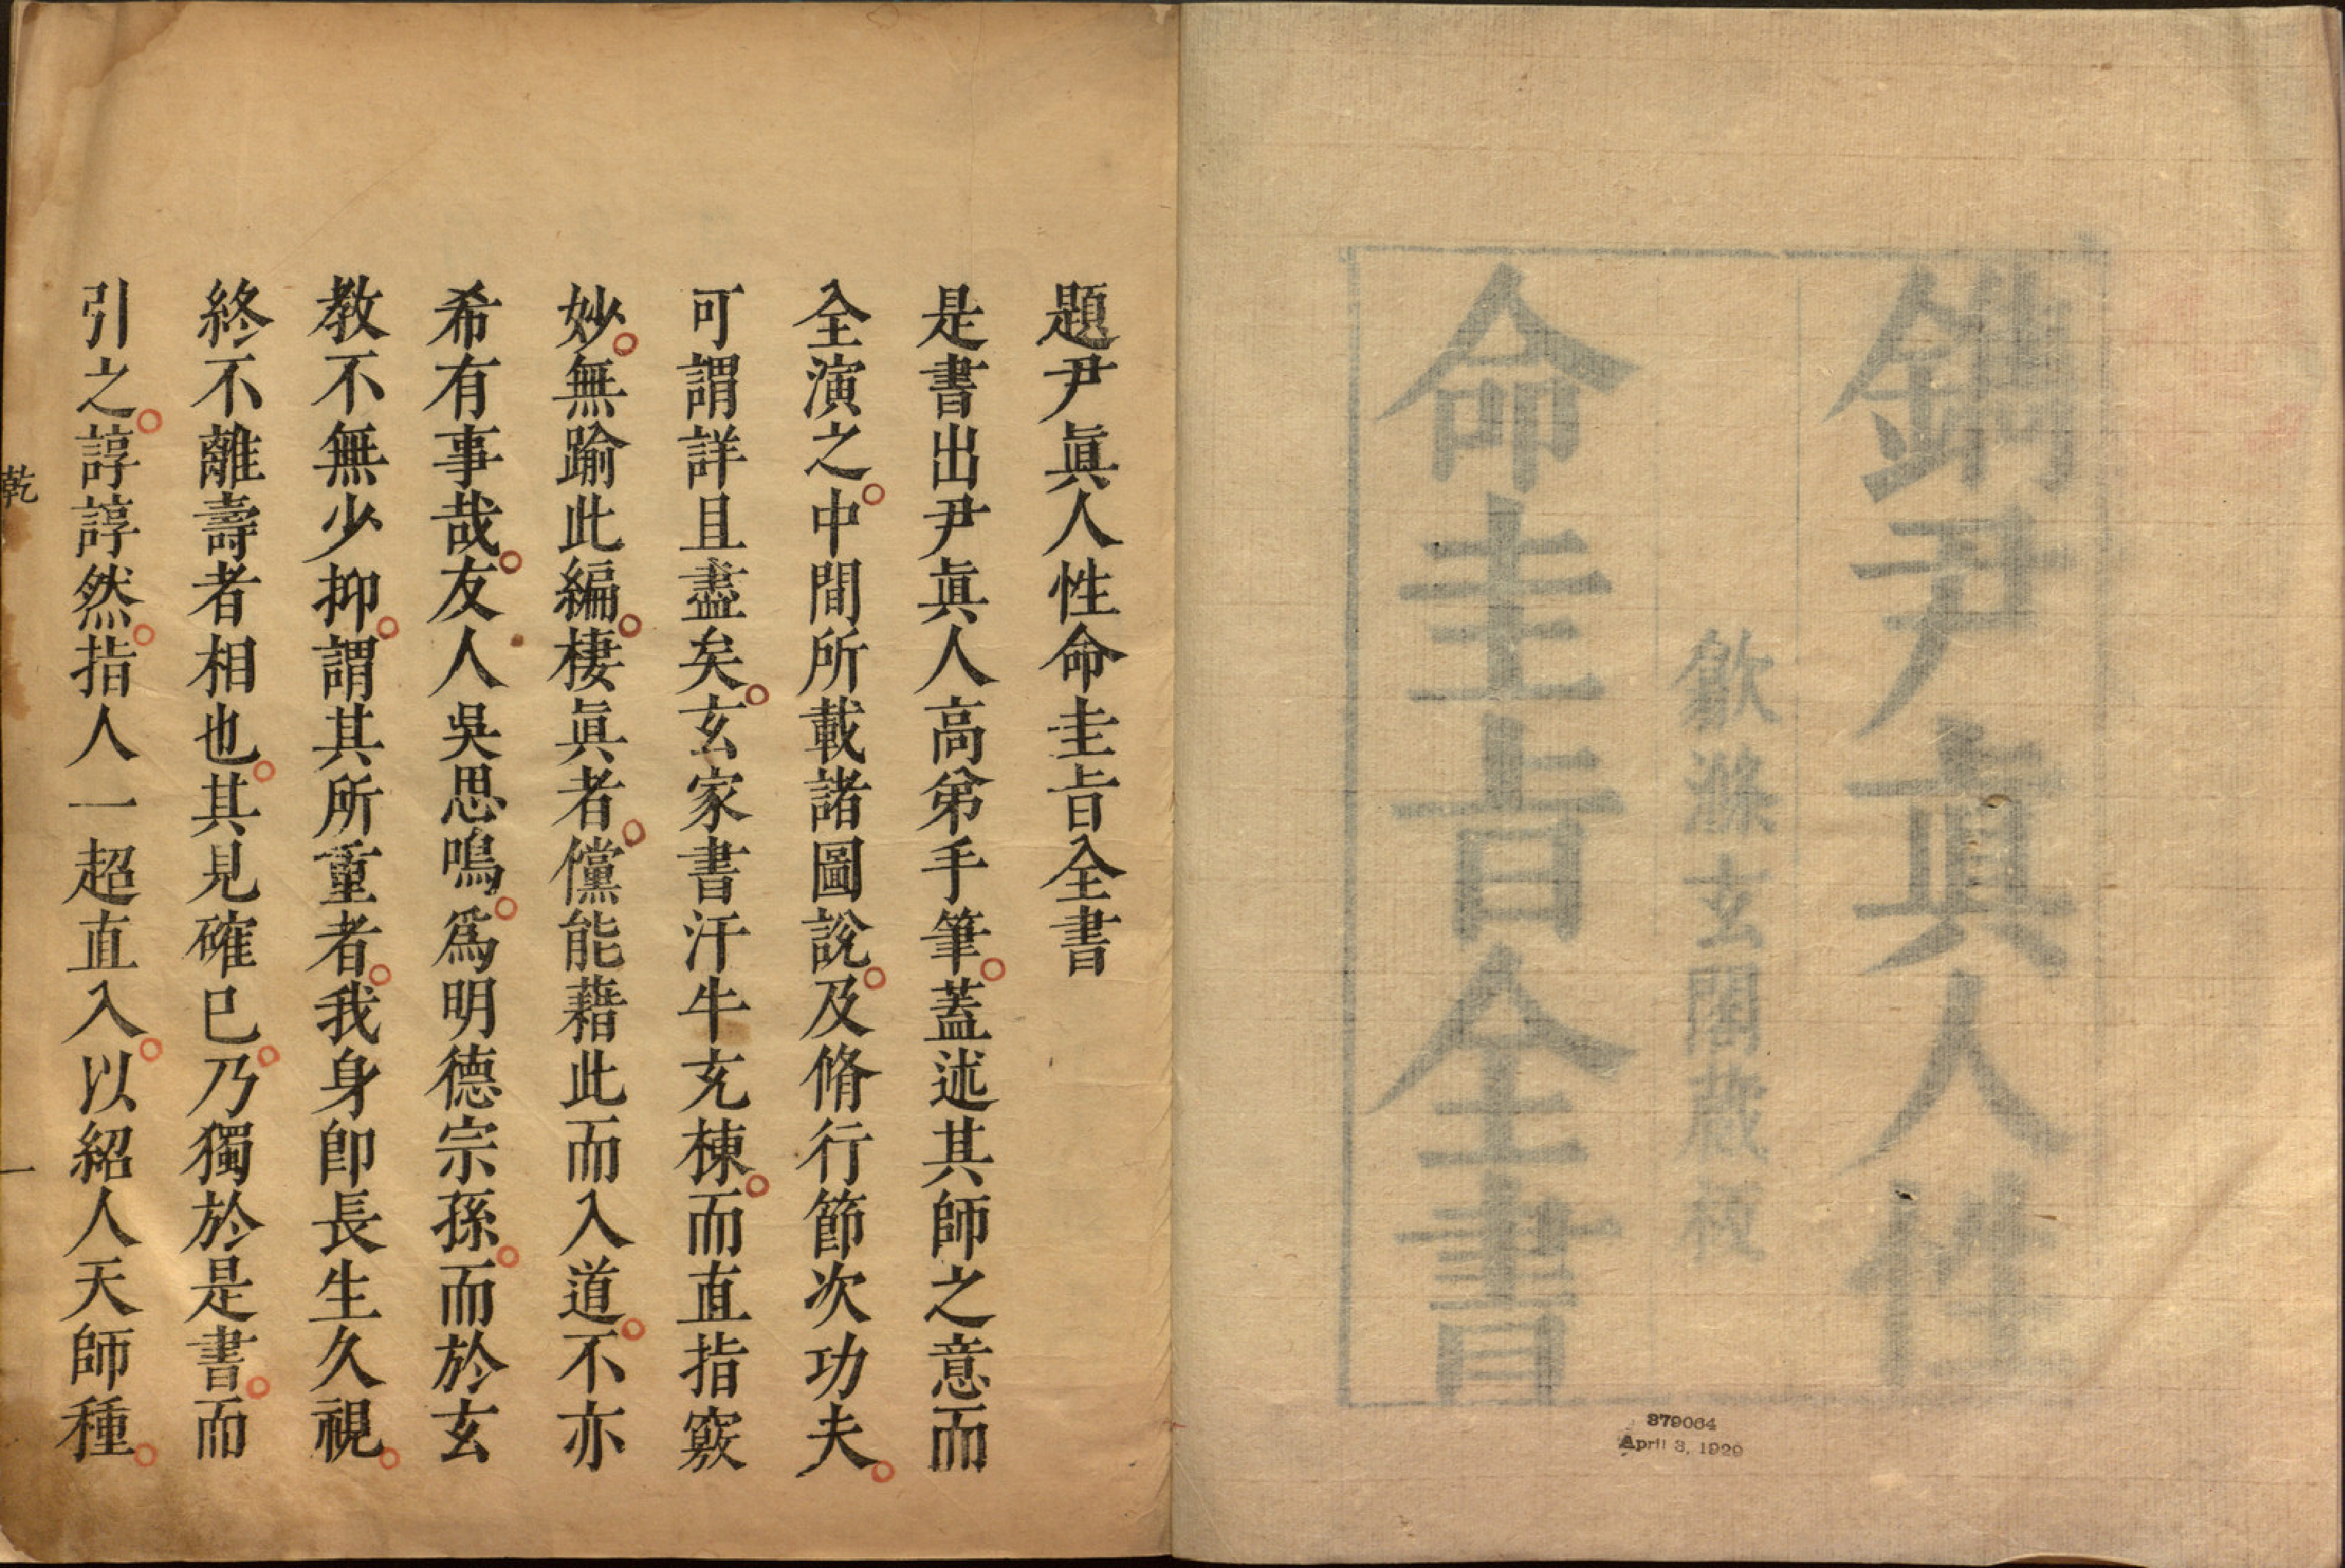 鐫尹眞人性
歙滌玄閣藏板
命圭旨全書
379064
April 3,
題尹眞人性命圭旨全書
是書出尹眞人高弟手筆。蓋述其師之意而
全演之。中間所載諸圖說。及脩行節次功夫。
可謂詳且盡矣。玄家書汗牛充棟。而直指竅
妙。無踰此編。棲眞者。儻能藉此而入道。不亦
希有事哉。友人吳思鳴。爲明德宗孫。而於玄
教不無少抑。謂其所重者。我身卽長生久視。
終不離壽者相也。其見確已。乃獨於是書。而
引之。諄諄然。指人一超直入。以紹人天師種。
乾
一